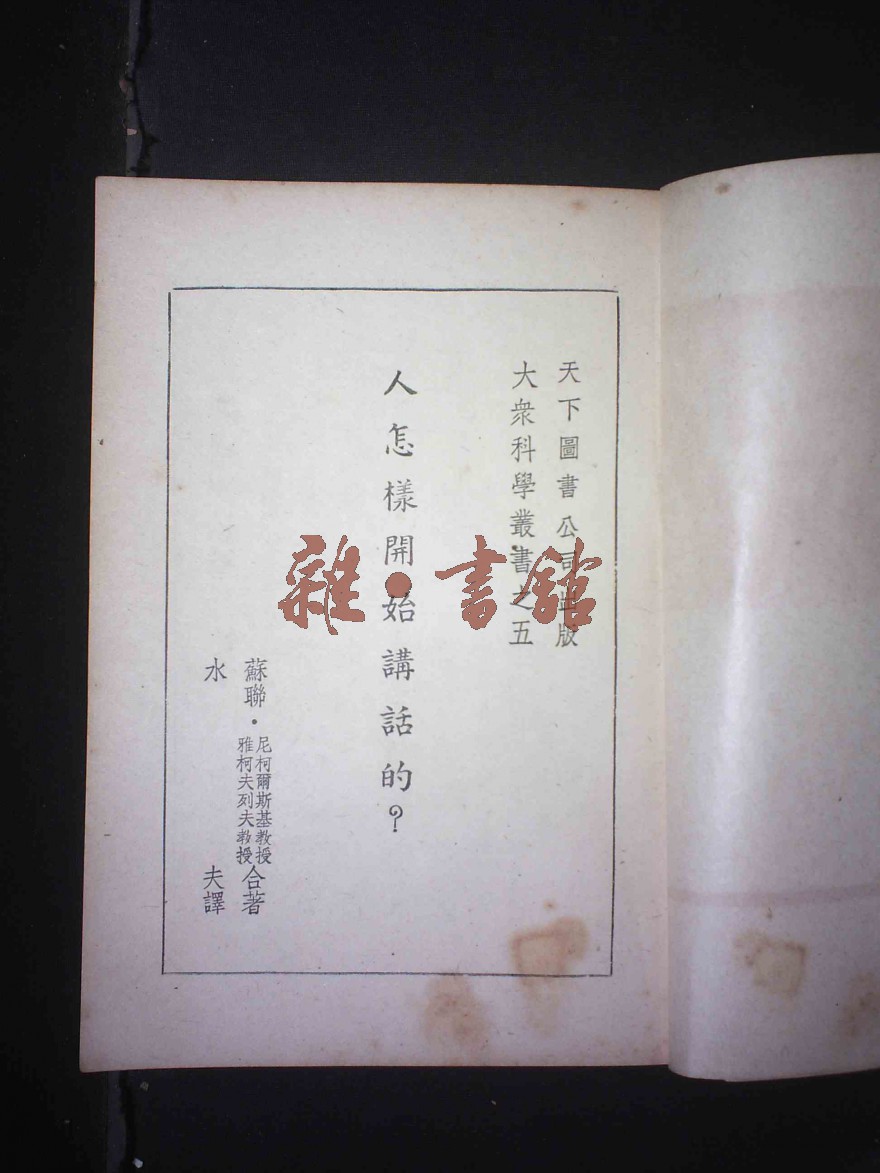 天下圖書公司出版
大衆科學叢書之五
人怎樣開始講話的？
蘇聯・尼柯爾斯基教授
雅柯夫列夫教授
合著
水夫譯
雜・書館